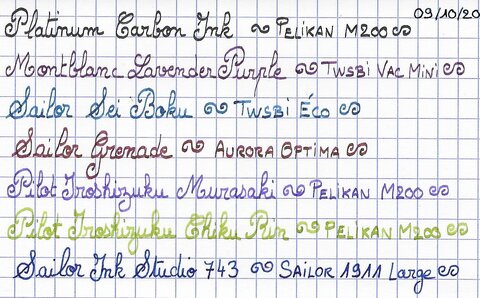 09/10/20
Platinum Carbon Ink ~ PELIKAN M200
Montblanc Lavender Purple ~ TWSBI VAC MINI
Sailor Sei Boku ~ TWSBI ÉCO
Sailor Grenade ~ AURORA OPTIMA
Pilot Iroshizuku Murasaki ~ PELIKAN M200
Pilot Iroshizuku Chiku Rin ~ PELIKAN M200
Sailor Ink Studio 743 ~ SAILOR 1911 Large